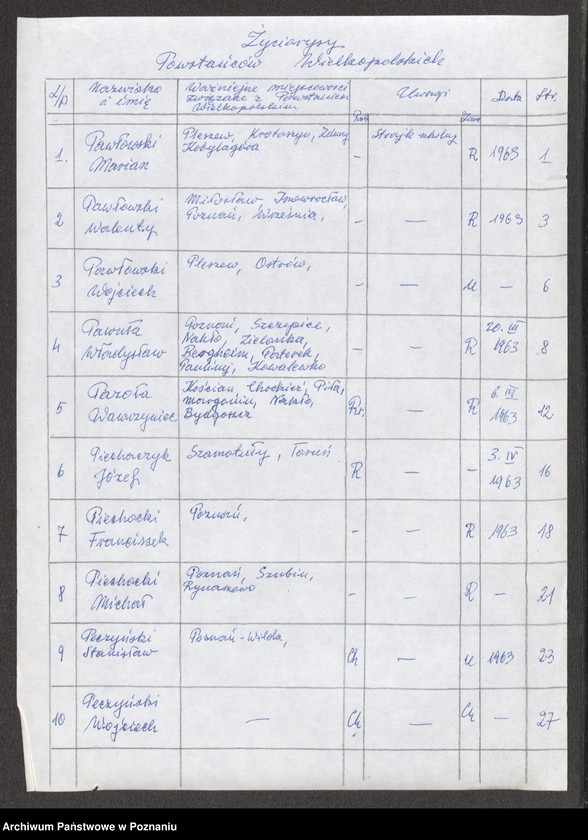 Życiorysy
Powstańców Wielkopolskich
L/p Nazwisko i imię Ważniejsze miejscowości związane z Powstaniem Wielkopolskim Uwagi Data Str.
1. Pawłowski Marian Pleszew, Krotoszyn, Zduny Kobylagóra - Strajk szkolny R 1963 1
2 Pawłowski Walenty Miłosław, Inowrocław, Poznań, Września, - — R 1963 3
3 Pawłowski Wojciech Pleszew, Ostrów, - — — 6
4 Pawuła Władysław Poznań, Szczepice, Nakło, Zielonka, - — R 20. III 1963 8
5 Wawrzyniec Kościan, Chodzież, Piła, Margonin, Nakło, Bydgoszcz — R 1963 12
6 Piechaczyk Józef Szamotuły, Toruń R — - 3. IV 1963 16
7 Piechocki Franciszek Poznań, - — R 1963 18
8 Piechocki Michał Poznań, Szubin, Rynarzewo - — R — 21
9 Peczyński Stanisław Poznań-Wilda, Ch — 1963 23
10 Peczyński Wojciech — Ch — Ch — 27
Archiwum Państwowe w Poznaniu